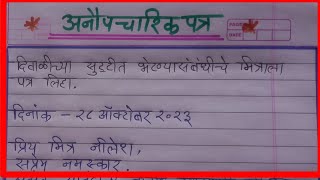 अनौपचारिक पत्र
दिवाळीच्या सुट्टीत भेटण्यासंबंधीचे मित्राला
पत्र लिहा.
दिनांक - २८ ऑक्टोबर २०२३
प्रिय मित्र नीलेश,
सप्रेम नमस्कार.